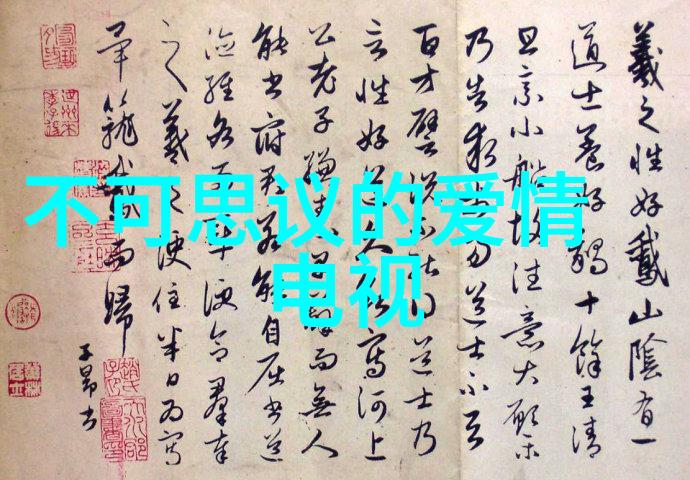 不可思议的爱情
电视
羲之性好鵞山陰有一
道士養好鵝十餘王清
旦乘小船故往意大願樂
乃告求市易道士不
百方譬說不能得道士乃
言性好道久欲寫河上
公老子縑素早辦而無人
能書府君若能自屈書道
德經各兩章便合羣奉
之羲之便住半日為寫
畢籠鵝而歸
子昂書